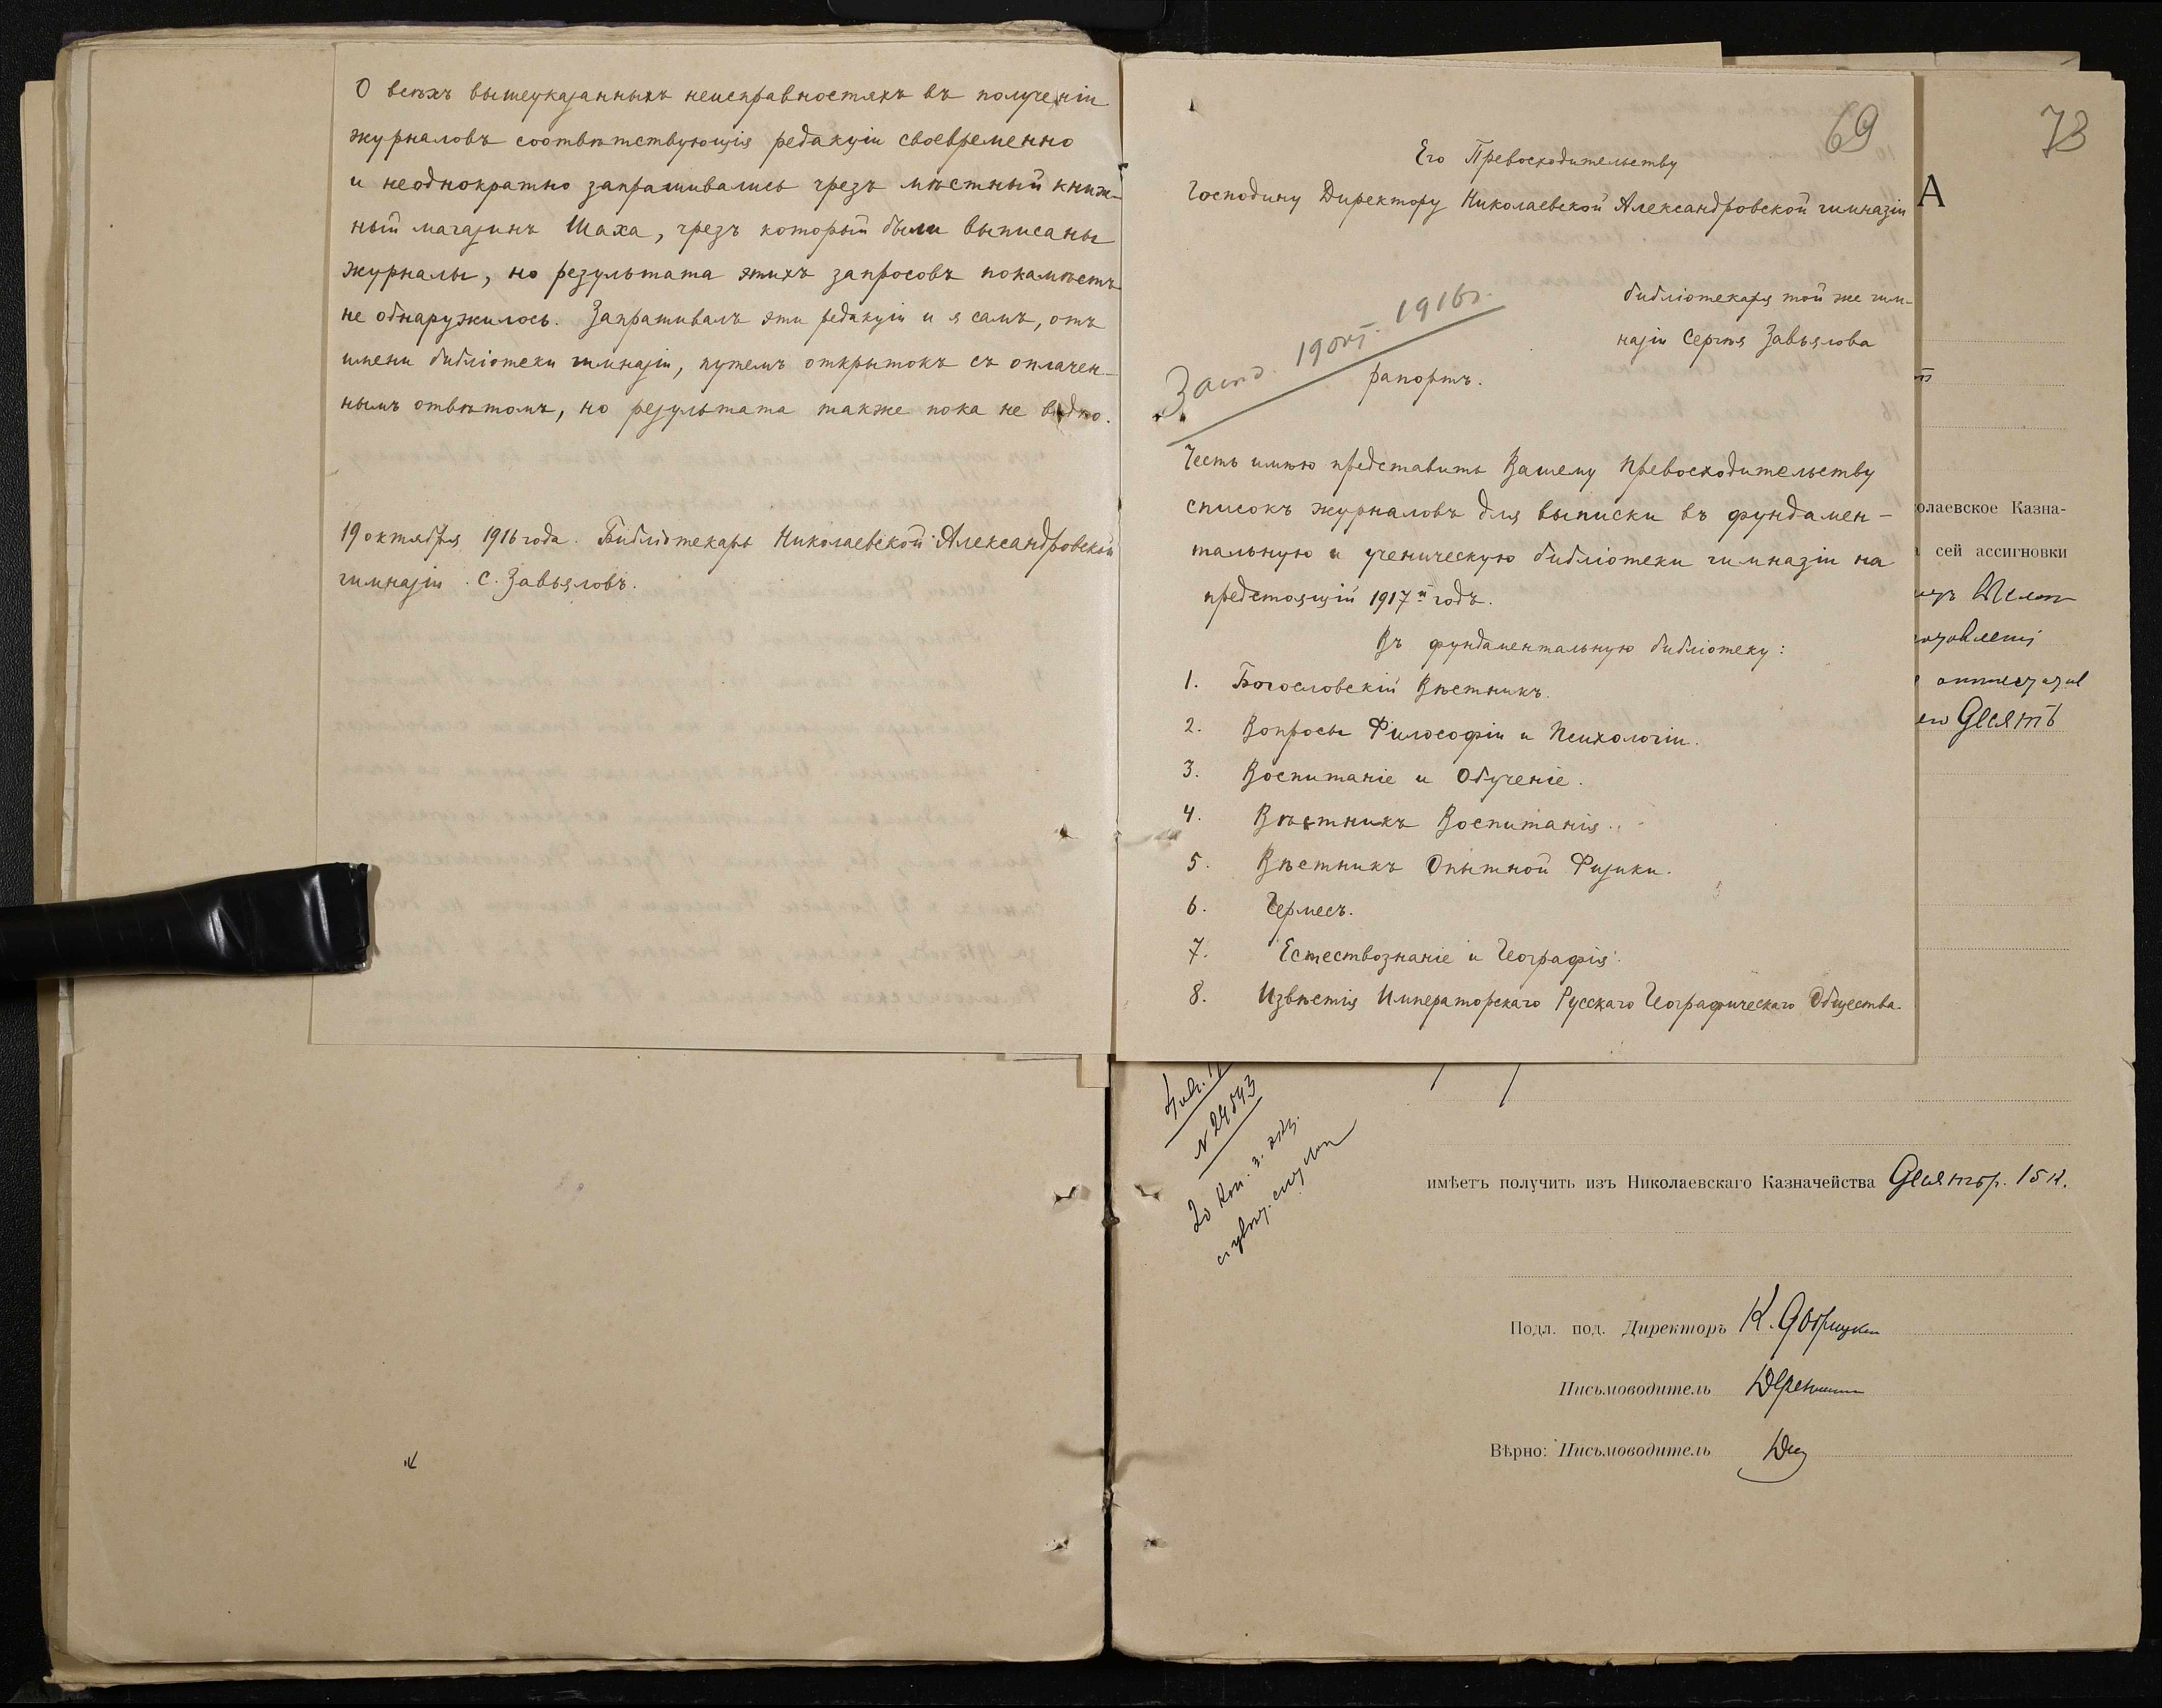 О всѣхъ вышеуказанныхъ неисправностяхъ въ полученіи
журналовъ соотвѣтствующія редакціи своевременно
и неоднократно запрашивались чрезъ мѣстный книж-
ный магазинъ Шаха, чрезъ который были выписаны
журналы, но результата этихъ запросовъ покамѣстъ
не обнаружилось. Запрашивалъ эти редакціи и я самъ, отъ
имени библіотеки гимназіи, путемъ открытокъ съ оплачен-
нымъ отвѣтомъ, но результата также пока не видно.
19 октября 1916 года. Библіотекарь Николаевской Александровской
гимназіи С. Завьяловъ.
69
Его Превосходительству
Господину Директору Николаевской Александровской гимназіи
библіотекаря той же гим-
назіи Сергѣя Завьялова
19 окт. 1916 г.
рапортъ.
Честь имѣю представить Вашему Превосходительству
списокъ журналовъ для выписки въ фундамен-
тальную и ученическую библіотеки гимназіи на
предстоящій 1917й годъ.
Въ фундаментальную библіотеку:
1. Богословскій Вѣстникъ.
2. Вопросы Философіи и Психологіи.
3. Воспитаніе и Обученіе.
4. Вѣстникъ Воспитанія.
5. Вѣстникъ Опытной Физики.
6. Гермесъ.
7. Естествознаніе и Географія.
8. Извѣстія Императорскаго Русскаго Географическаго Общества
73
А
олаевское Казна-
сей ассигновки
Десять
N 24543
20 коп.
имѣетъ получить изъ Николаевскаго Казначейства Десять р. 15 к.
Подл. под. Директоръ К.
Письмоводитель
Вѣрно: Письмоводитель